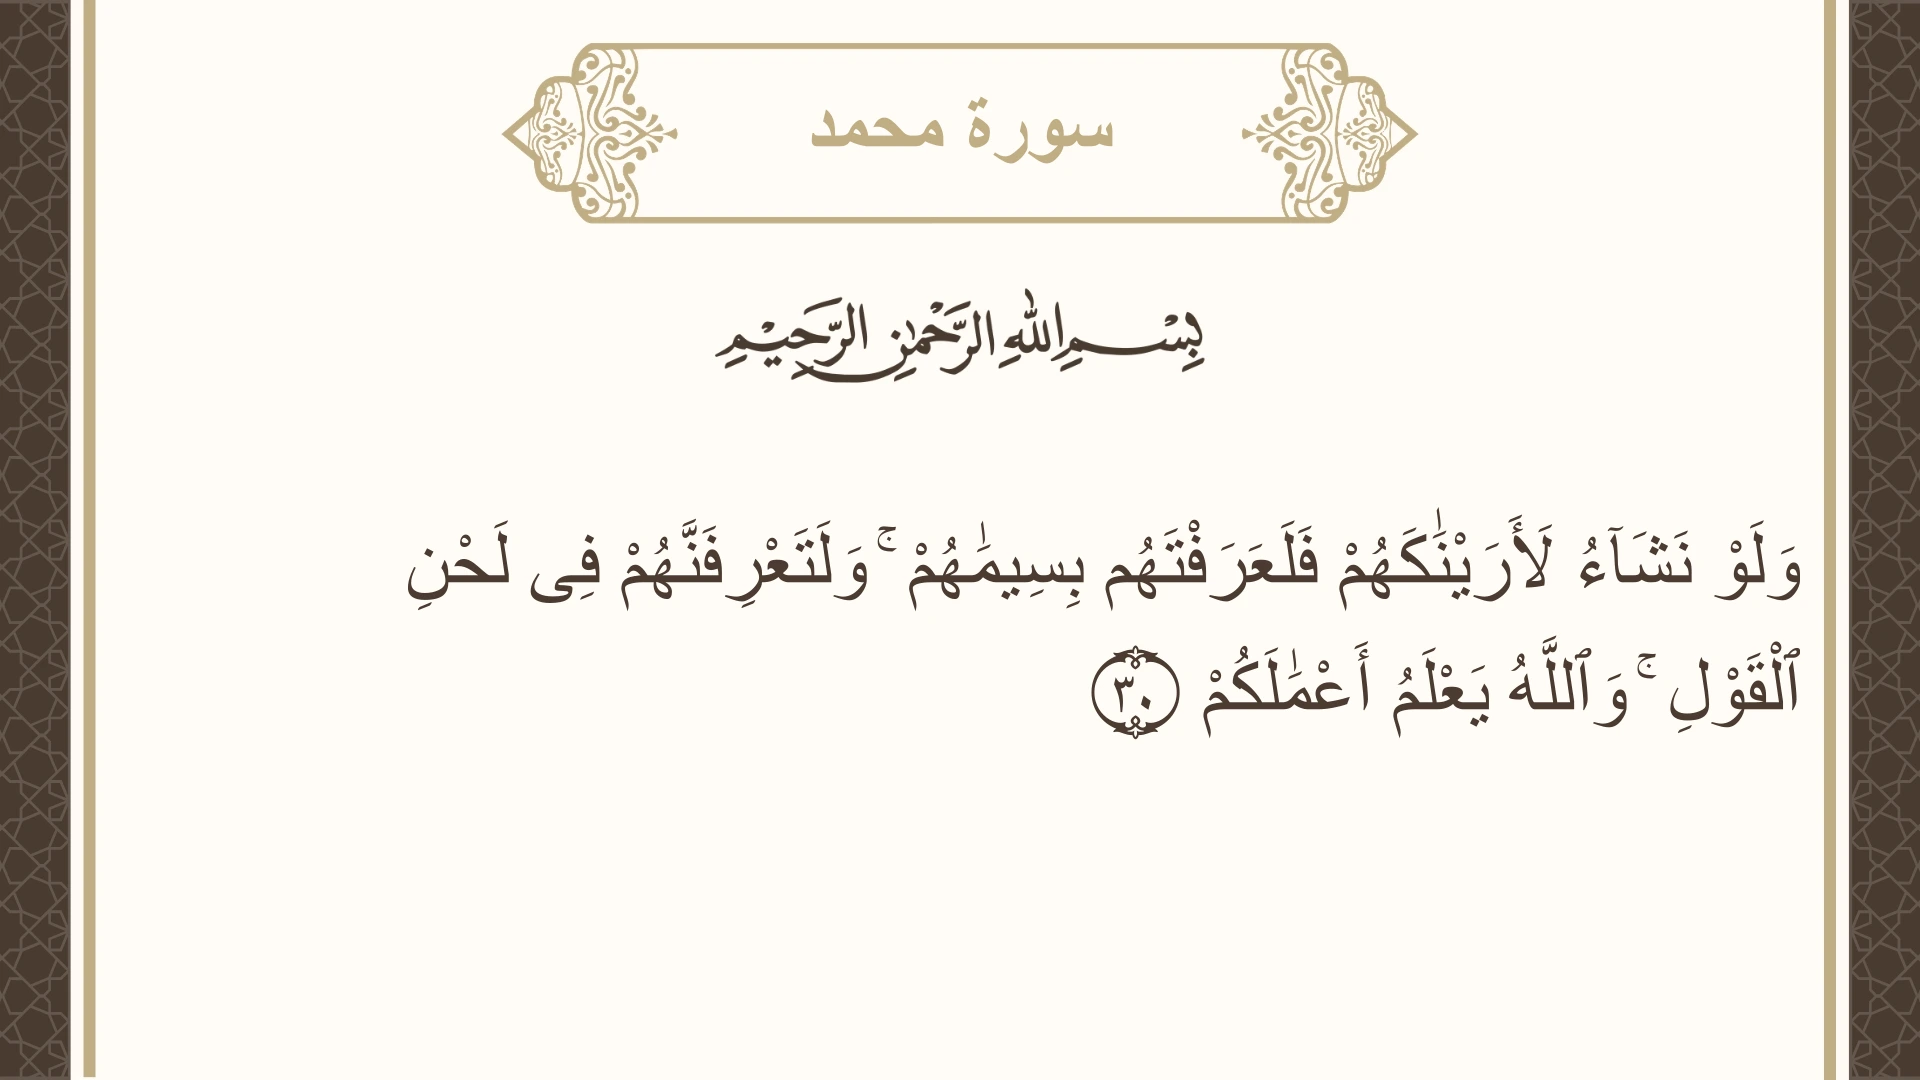 سورة محمد
بِسْمِ اللهِ الرَّحْمٰنِ الرَّحِيْمِ
وَلَوْ نَشَآءُ لَأَرَيْنَٰكَهُمْ فَلَعَرَفْتَهُم بِسِيمَٰهُمْ ۚ وَلَتَعْرِفَنَّهُمْ فِى لَحْنِ
ٱلْقَوْلِ ۚ وَٱللَّهُ يَعْلَمُ أَعْمَٰلَكُمْ ٣٠